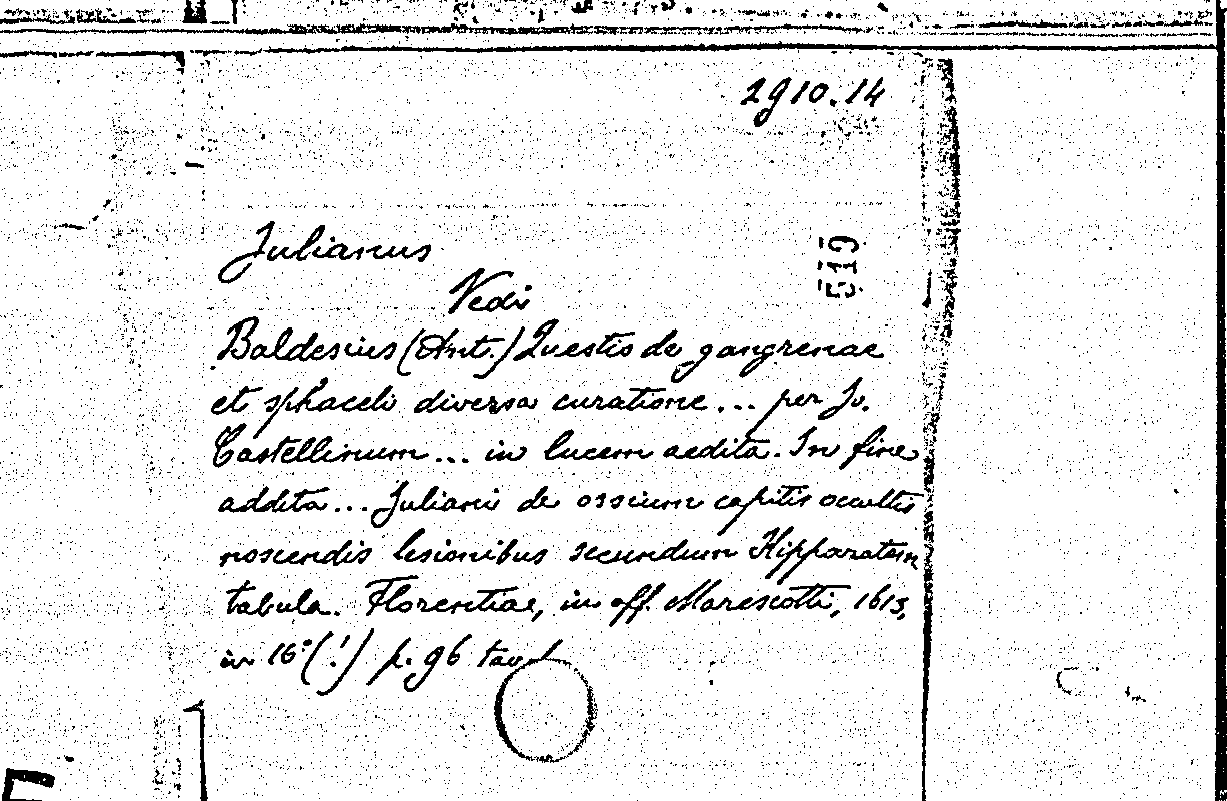 2910.14
Julianus
519
Vedi
Baldesius (Ant.) Questio de gangrenae
et sphaceli diversa curatione ... per Jo.
Castellinum ... in lucem aedita. In fine
addita ... Juliani de ossium capitis occultis
noscendis lesionibus secundum Hipparatem
tabula. Florentiae, in off. Marescotti, 1613,
in 16°(!) p. 96 tav.